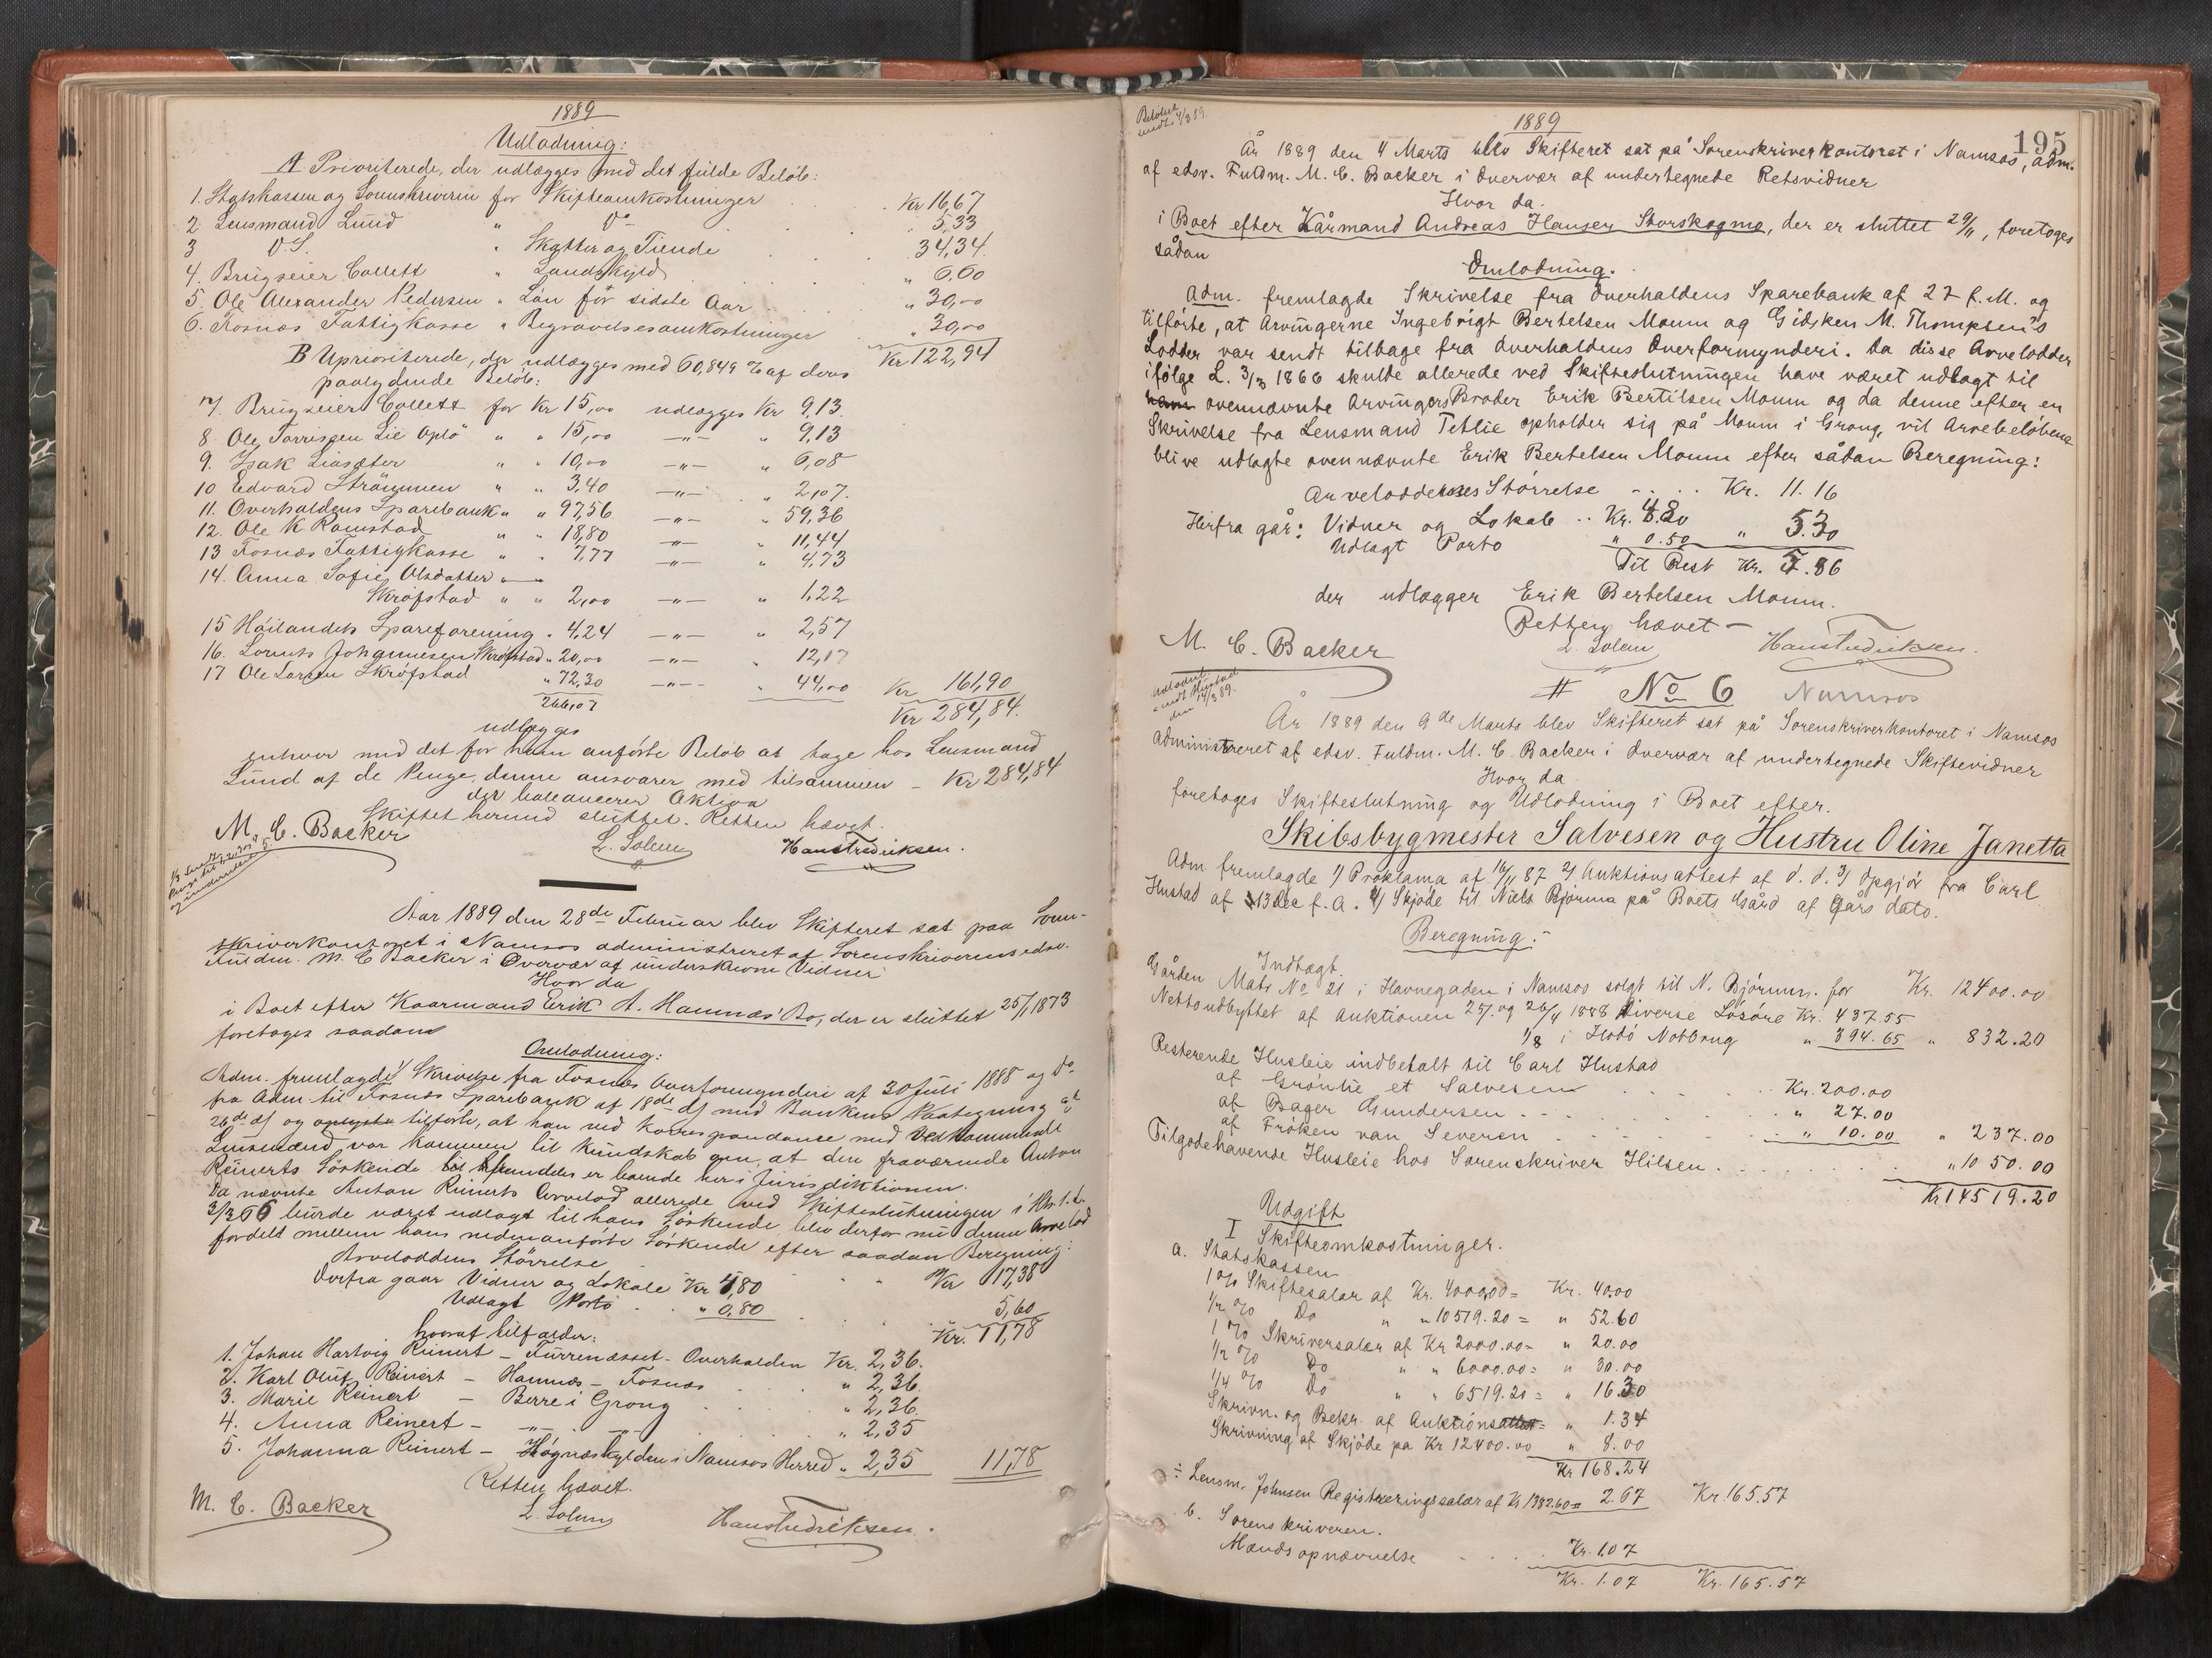 1889
Udlodning:
A Prioriterede, der udlægges med det fulde Beløb:
1. Statskassen og Sorenskriveren for Skifteomkostninger Kr 16,67
2 Lensmand Lund " Do 5,33
3 DS. " Skatter og Tiende 34,34
4. Brugseier Collett " Landskyld " 6,60
5. Ole Alexander Pedersen " Løn for sidste Aar " 30,00
6. Fosnæs Fattigkasse " Begravelsesomkostninger " 30,00
Kr 122,94
B Uprioriterede, der udlægges med 60,849 % af deres
paalydende Beløb:
7. Brugseier Collett for Kr 15,00 udlægges Kr 9,13.
8. Ole Torrissen Lie Oplø " " 15,00 —"— " 9,13
9. Isak Liasæter " " 10,00 —"— " 6,08
10 Edvard Strømmen " " 3,40 —"— " 2,07.
11. Overhaldens Sparebank " " 97,56 —"— " 59,36
12. Ole K Ramstad " " 18,80 —"— " 11,44
13 Fosnæs Fattigkasse " " 7,77 —"— " 4,73
14. Anna Sofie Olsdatter
Skrøfstad " " 2,00 —"— " 1,22
15 Høilandets Spareforening " 4,24 —"— " 2,57
16. Lorents Johannesen Skrøfstad " 20,00 —"— " 12,17
17 Ole Larsen Skrøfstad " 72,30 —"— " 44,00 Kr 161,90
266,07 Kr 284,84.
udlægges
enhver med det for ham anførte Beløb at tage hos Lensmand
Lund af de Penge, denne ansvarer med tilsammen - Kr 284,84
der balancerer Aktiva
Skiftet hermed sluttet. Retten hævet.
M. C. Backer L. Solem Hans Fredriksen.
Aar 1889 den 28de Februar blev Skifteret sat paa Soren-
skriverkontoret i Namsos administreret af Sorenskriverens edsv.
Fuldm. M. C Backer i Overvær af underskrevne Vidner
Hvor da
i Boet efter Kaarmand Erik A. Hamnæs' Bo, der er sluttet 25/1 1873
foretoges saadan
Omlodning:
Adm. fremlagde 1/ Skrivelse fra Fosnæs Overformynderi af 30 Juli 1888 og Do.
fra Adm. til Fosnæs Sparebank af 18de ds med Bankens Paategning af
26de ds og oplyste tilførte, at han ved Korrespondance med Vedkommende
Lensmænd var kommen til Kundskab om, at den fraværende Anton
Reinerts Søskende er boende her i Jurisdiktionen.
Da nævnte Anton Reinerts Arvelod allerede ved Skifteslutningen i Hh. t. L.
3/3 66 burde været udlagt til hans Søskende, blev derfor nu denne Arvelod
fordelt mellem hans nedenanførte Søskende efter saadan Beregning:
Arveloddens Størrelse Kr 17,38
Derfra gaar Vidner og Lokale Kr 4,80
Udlagt Porto " 0,80 5,60
hvoraf tilfalder: Kr. 11,78
1. Johan Hartvig Reinert - Furrenæsset - Overhalden Kr. 2,36.
2. Karl Oluf Reinert - Hamnæs - Fosnæs " 2,36
3. Marie Reinert - Berre i Grong " 2,36.
4. Anna Reinert - —"— " 2,35
5. Johanna Reinert - Høgnæshylden i Namsos Herred " 2,35 11,78
Retten hævet.
M. C. Backer L. Solem Hans Fredriksen.
Beløbet
sendt 4/3 89.
1889
195
År 1889 den 4 Marts blev Skifteret sat på Sorenskriverkontoret i Namsos, adm.
af edsv. Fuldm. M. C. Backer i Overvær af undertegnede Retsvidner
Hvor da.
i Boet efter Kårmand Andreas Hansen Storskogmo, der er sluttet 29/11, foretoges
sådan
Omlodning.
Adm. fremlagde Skrivelse fra Overhaldens Sparebank af 27 f. M. og
tilførte, at Arvingerne Ingebrigt Bertelsen Moum og Gidsken M. Thompsen's
Lodder var sendt tilbage fra Overhaldens Overformynderi. Da disse Arvelodder
ifølge L. 3/3 1866 skulde allerede ved Skifteslutningen have været udlagt til
ham ovennævnte Arvingers Broder Erik Bertilsen Moum og da denne efter en
Skrivelse fra Lensmand Tetlie opholder sig på Moum i Grong, vil Arvebeløbene
blive udlagte ovennævnte Erik Bertelsen Moum efter sådan Beregning:
Arveloddernes Størrelse Kr. 11.16
Herfra går: Vidner og Lokale Kr. 4.80
Udlagt Porto " 0.50 " 5.30
Til Rest Kr. 5.86
der udlægger Erik Bertelsen Moum.
Retten hævet —
M. C. Backer L. Solem Hans Fredriksen.
# No 6 Namsos
År 1889 den 9de Marts blev Skifteret sat på Sorenskriverkontoret i Namsos
administreret af edsv. Fuldm. M. C. Backer i Overvær af undertegnede Skiftevidner
Hvor da
foretoges Skifteslutning og Udlodning i Boet efter.
Skibsbygmester Salvesen og Hustru Oline Janetta
Adm fremlagde 1/ Proklama af 16/11 87 2/ Auktionsattest af d. d. 3/ Opgjør fra Carl
Hustad af 13 Dec f. A. 4/ Skjøde til Niels Bjørum på Boets Gård af Gårs dato.
Beregning.
Indtægt.
Gården Matr No 21 i Havnegaden i Namsos solgt til N. Bjørum for Kr. 12400.00
Nettoudbyttet af Auktionen 25/ og 26/4 1888 diverse Løsøre Kr. 437.55
1/8 i Hodø Notbrug " 394.65 " 832.20
Resterende Husleie indbetalt til Carl Hustad
af Grønlie et Salvesen Kr. 200.00
af Bager Gundersen " 27.00
af Frøken van Severen " 10.00 " 237.00
Tilgodehavende Husleie hos Sorenskriver Hilsen " 1050.00
Kr 14519.20
Udgift
I Skifteomkostninger.
a. Statskassen
1 % Skiftesalær af Kr. 4000,00 = Kr. 40,00
1/2 % Do " " 10519.20 = " 52.60
1 % Skriversalær af Kr 2000.00 = " 20.00
1/2 % Do " " 6000.00 = " 30.00
1/4 % Do " " 6519.20 = " 16.30
Skrivn. og Bekr. af Auktionsattest = " 1.34
Skrivning af Skjøde på Kr 12400.00 " 8.00
Kr 168.24
÷ Lensm. Johnsen Registreringssalær af Kr 1382.60 = 2.67 Kr. 165.57
b. Sorenskriveren.
Mænds opnævnelse Kr. 1.07
Kr. 1.07 Kr. 165.57